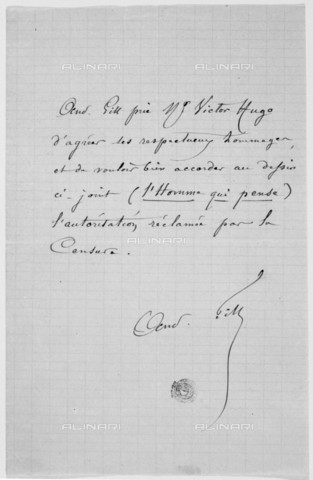 ALINARI
And. Gill prie Mr Victor Hugo
d'agréer ses respectueux hommages,
et de vouloir bien accorder au dessin
ci-joint (l'Homme qui pense)
l'autorisation réclamée par la
Censure.
And. Gill
ALINARI